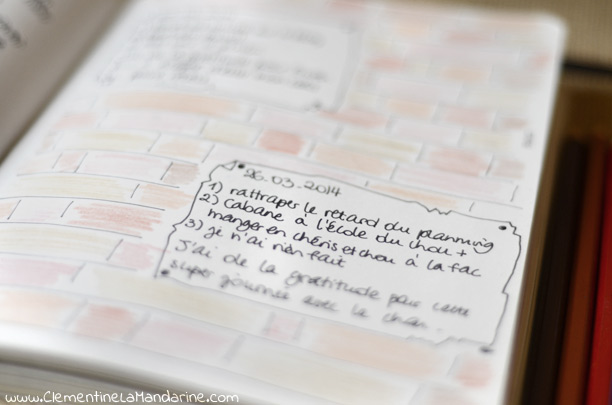 26.03.2014
1) rattraper le retard du planning
2) Cabane à l'école du chou +
manger en chéris et chou à la fac
3) je n'ai rien fait
J'ai de la gratitude pour cette
super journée avec le chou.
www.ClementineLaMandarine.com